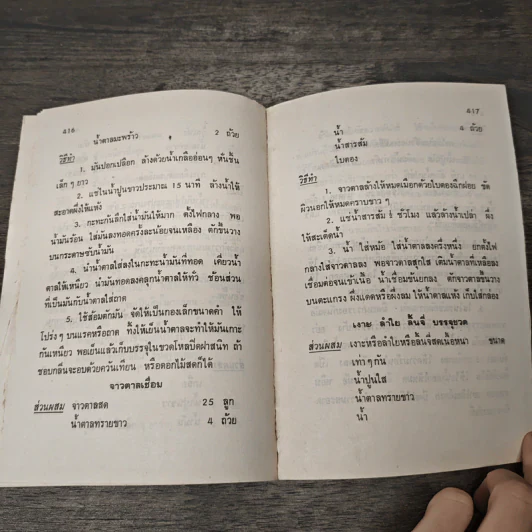 ๔๑๖
น้ำตาลมะพร้าว 2 ถ้วย
วิธีทำ
1. มันปอกเปลือก ล้างด้วยน้ำเกลืออ่อนๆ หั่นชิ้น
เล็กๆ ยาว
2. แช่ในน้ำปูนขาวประมาณ 15 นาที ล้างน้ำให้
สะอาดผึ่งให้แห้ง
3. กะทะก้นลึกใส่น้ำมันให้มาก ตั้งไฟกลาง พอ
น้ำมันร้อน ใส่มันลงทอดครั้งละน้อยจนเหลือง ตักขึ้นวาง
บนกระดาษซับน้ำมัน
4. นำน้ำตาลใส่ลงในกะทะน้ำมันที่ทอด เคี่ยวน้ำ
ตาลให้เหนียว นำมันทอดลงคลุกน้ำตาลให้ทั่ว ช้อนส่วน
ที่เป็นมันกับน้ำตาลใส่ถาด
5. ใช้ส้อมตักมัน จัดให้เป็นกองเล็กขนาดคำ ให้
โปร่งๆ บนแรคหรือถาด ทิ้งให้เย็นน้ำตาลจะทำให้มันเกาะ
กันเหนียว พอเย็นแล้วเก็บบรรจุในขวดโหลปิดฝาสนิท ถ้า
ชอบกลิ่นจะอบด้วยควันเทียน หรือดอกไม้สดก็ได้
จาวตาลเชื่อม
ส่วนผสม จาวตาลสด 25 ลูก
น้ำตาลทรายขาว 4 ถ้วย
๔๑๗
น้ำ 4 ถ้วย
น้ำสารส้ม
ใบตอง
วิธีทำ
1. จาวตาลล้างให้หมดเมือกด้วยใบตองฉีกฝอย ขัด
ผิวนอกให้หมดคราบขาวๆ
2. แช่น้ำสารส้ม ชั่วโมง แล้วล้างน้ำเปล่า ผึ่ง
ให้สะเด็ดน้ำ
3. น้ำ ใส่หม้อ ใส่น้ำตาลลงครึ่งหนึ่ง ยกตั้งไฟ
กลางใส่จาวตาลลง พอจาวตาลสุกใส เติมน้ำตาลที่เหลือลง
เชื่อมต่อจนเข้าเนื้อ น้ำเชื่อมข้นยกลง ตักจาวตาลขึ้นวาง
บนตะแกรง ผึ่งแดดหรือผึ่งลม ให้น้ำตาลแห้ง เก็บใส่กล่อง
เงาะ ลำไย ลิ้นจี่ บรรจุขวด
ส่วนผสม เงาะหรือลำไยหรือลิ้นจี่สดเนื้อหนา ขนาด
เท่าๆ กัน
น้ำปูนใส
น้ำตาลทรายขาว
น้ำ